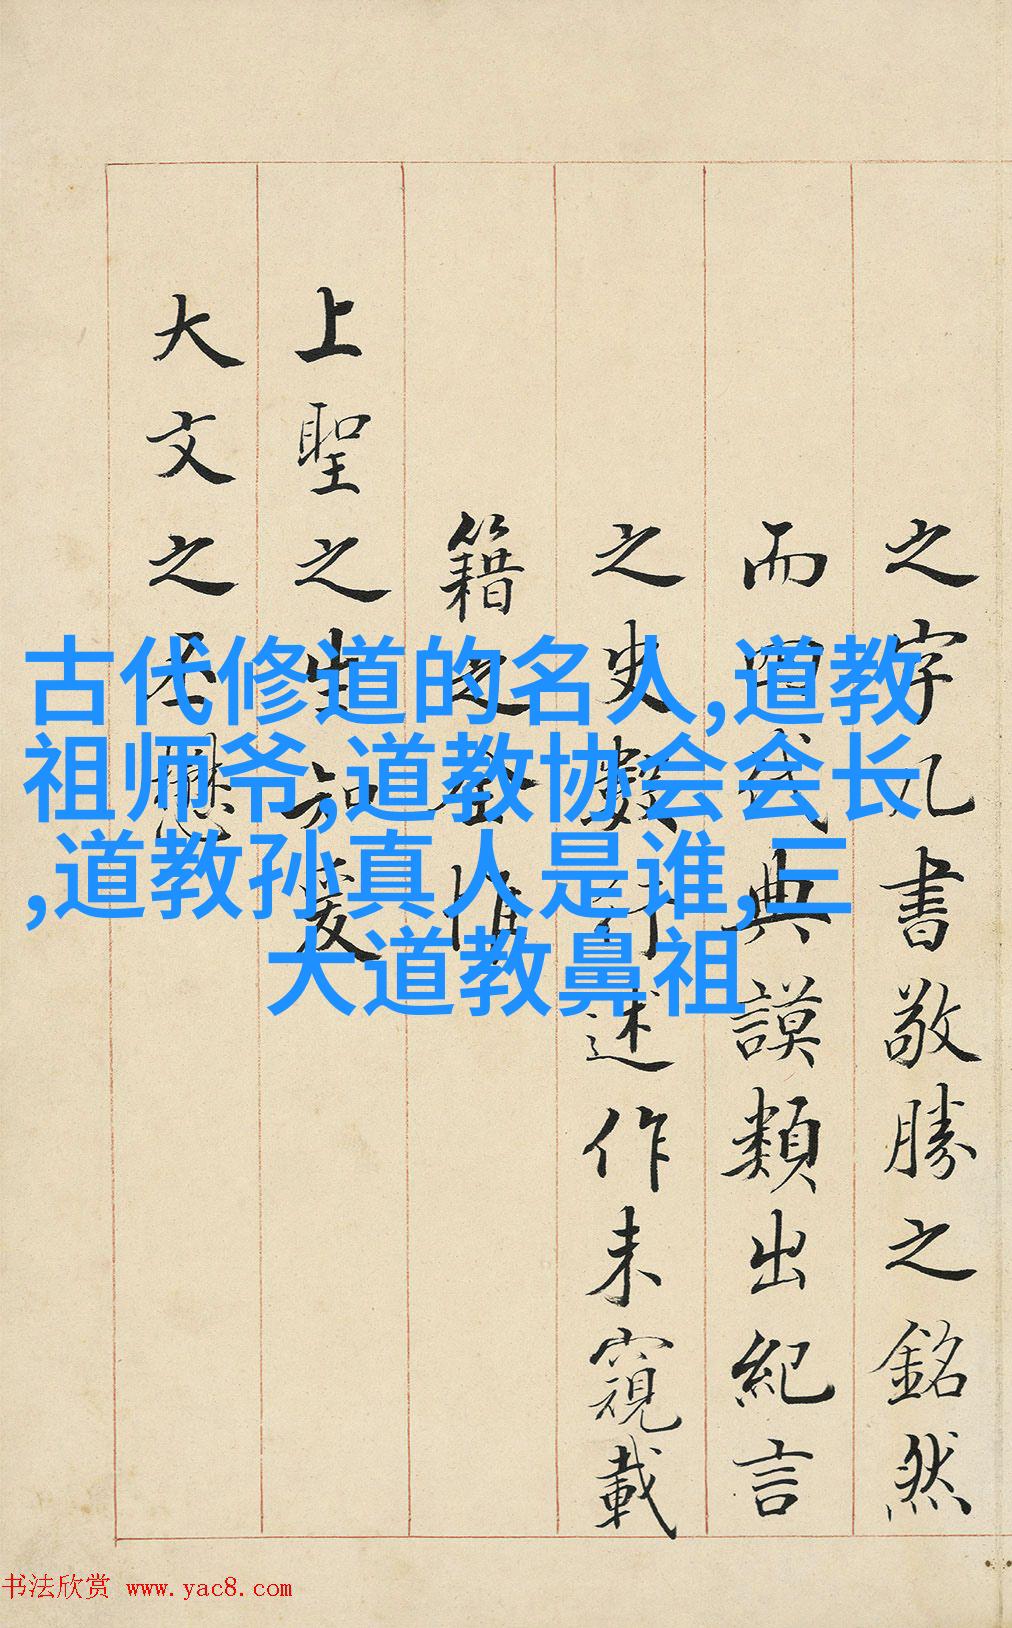 之字几书敬勝之銘然
而四代典謨類出紀言
之史數行述作未窺載
籍之全惟
上聖之生知爰
大文之丕懋
古代修道的名人,道教
祖师爷,道教协会会长
,道教孙真人是谁,三
大道教鼻祖
书法欣赏 www.yac8.com